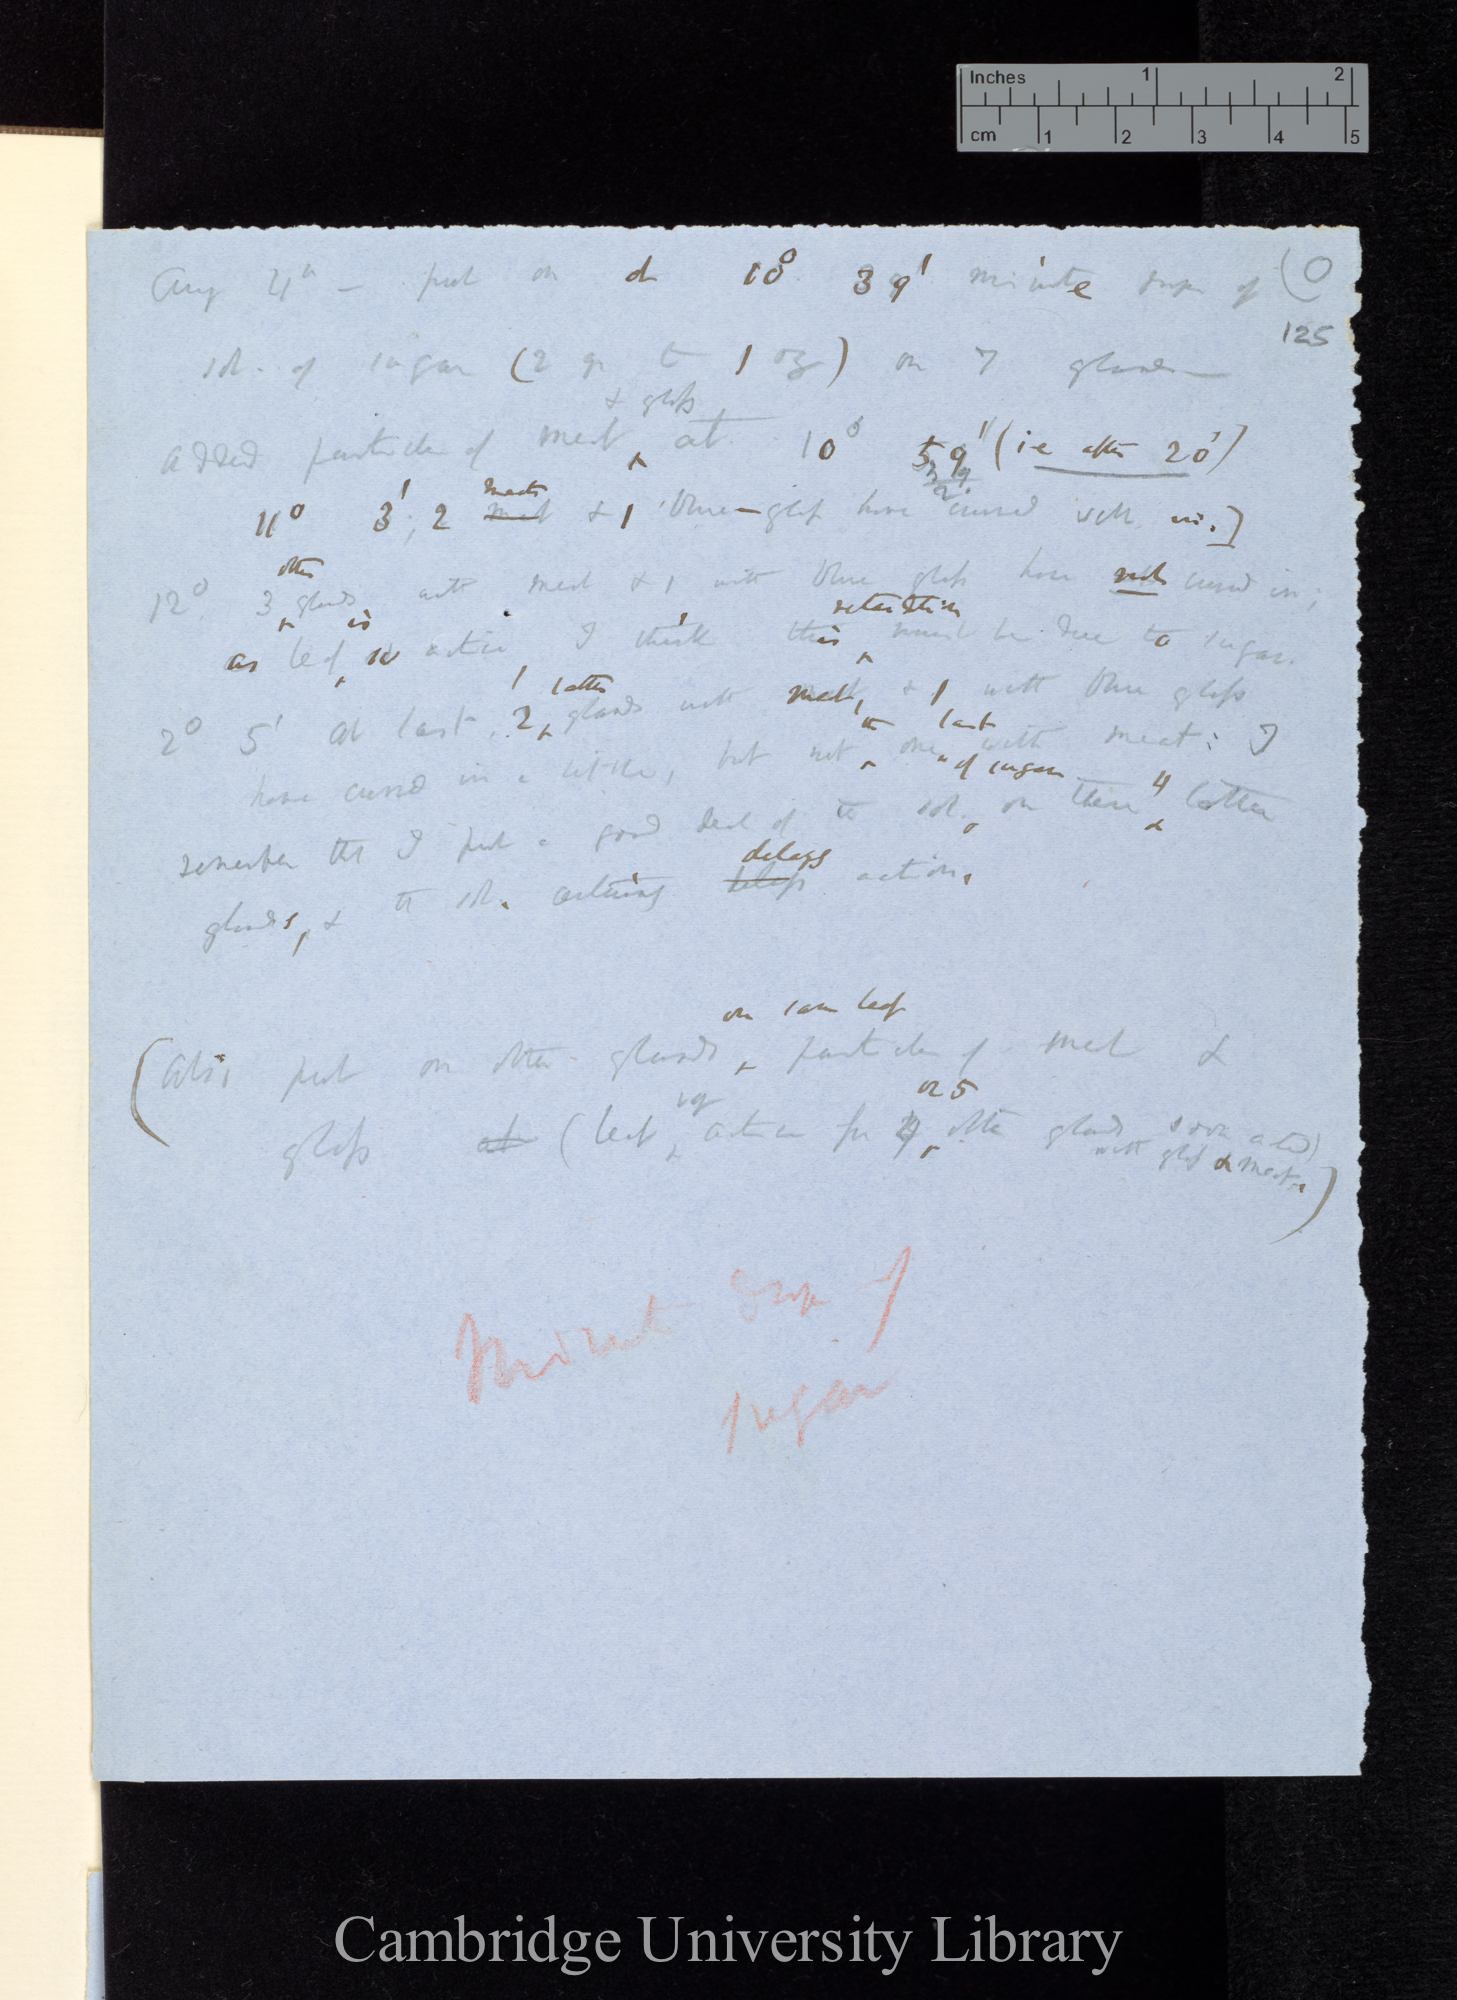 Inches 1 2
cm 1 2 3 4 5
Aug 4th — put on at 10° 39' minute drop of (O
125
sol. of sugar (2 gr to 1 oz) on 7 glands —
& glass
added particles of meat ^ at 10° 59' (ie after 20')
meats
11° 3'; 2 meat & 1 blue-glass have curved well in.]
other
12° 3 ^ glands with meat & 1 with blue glass have not curved in;
is retardation
as leaf ^ is active I think this ^ must be due to sugar.
latter
2° 5' at last, 2 ^ glands with meat, & 1 with blue glass
the last
have curved in a little, but not ^ one with meat: I
of sugar 4
remember tht I put a good deal of the sol. on these ^ latter
delays
glands, & the sol. certainly delays action.
on same leaf
(Also put on other glands ^ particles of meat &
very or 5
glass at (leaf ^ active for 4 ^ other glands soon acted)
with glass & meat.)
Minute drop of
sugar
Cambridge University Library